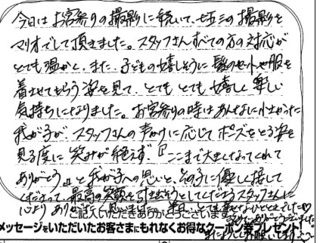 今日はお宮参りの撮影に続いて、七五三の撮影を
マリオでして頂きました。スタッフさんすべての方の対応が
とても温かく、また、子どもの嬉しそうに髪のセットや服を
着させてもらう姿を見て、とてもとても嬉しく楽しい
気持ちになりました。お宮参りの時はあんなに小さかった
我が子が、スタッフさんの声かけに応じてポーズをとる姿を
見る度に笑みが絶えず、『ここまで大きくなってくれて
ありがとう。』と我が子への思いと、その子に優しく接して
くださって、最高の笑顔を引き出そうとしてくださるスタッフさんに
心よりありがとう
ご記入いただきありがとうございます
メッセージをいただいたお客さまにもれなくお得なクーポン券プレゼント!